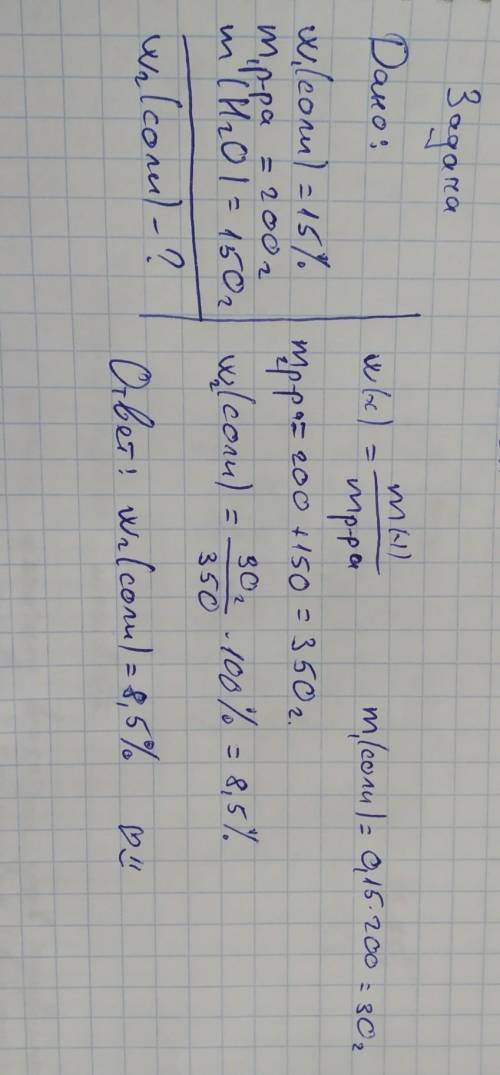 Задача
Дано:
w₁(соли) = 15%
m₁р-ра = 200г
m(H₂O) = 150г
w₂(соли) - ?
w(x) = m(x) / mр-ра
m₁(соли) = 0,15 · 200 = 30г
m₂р-ра = 200 + 150 = 350г.
w₂(соли) = 30г / 350 · 100% = 8,5%
Ответ: w₂(соли) = 8,5%